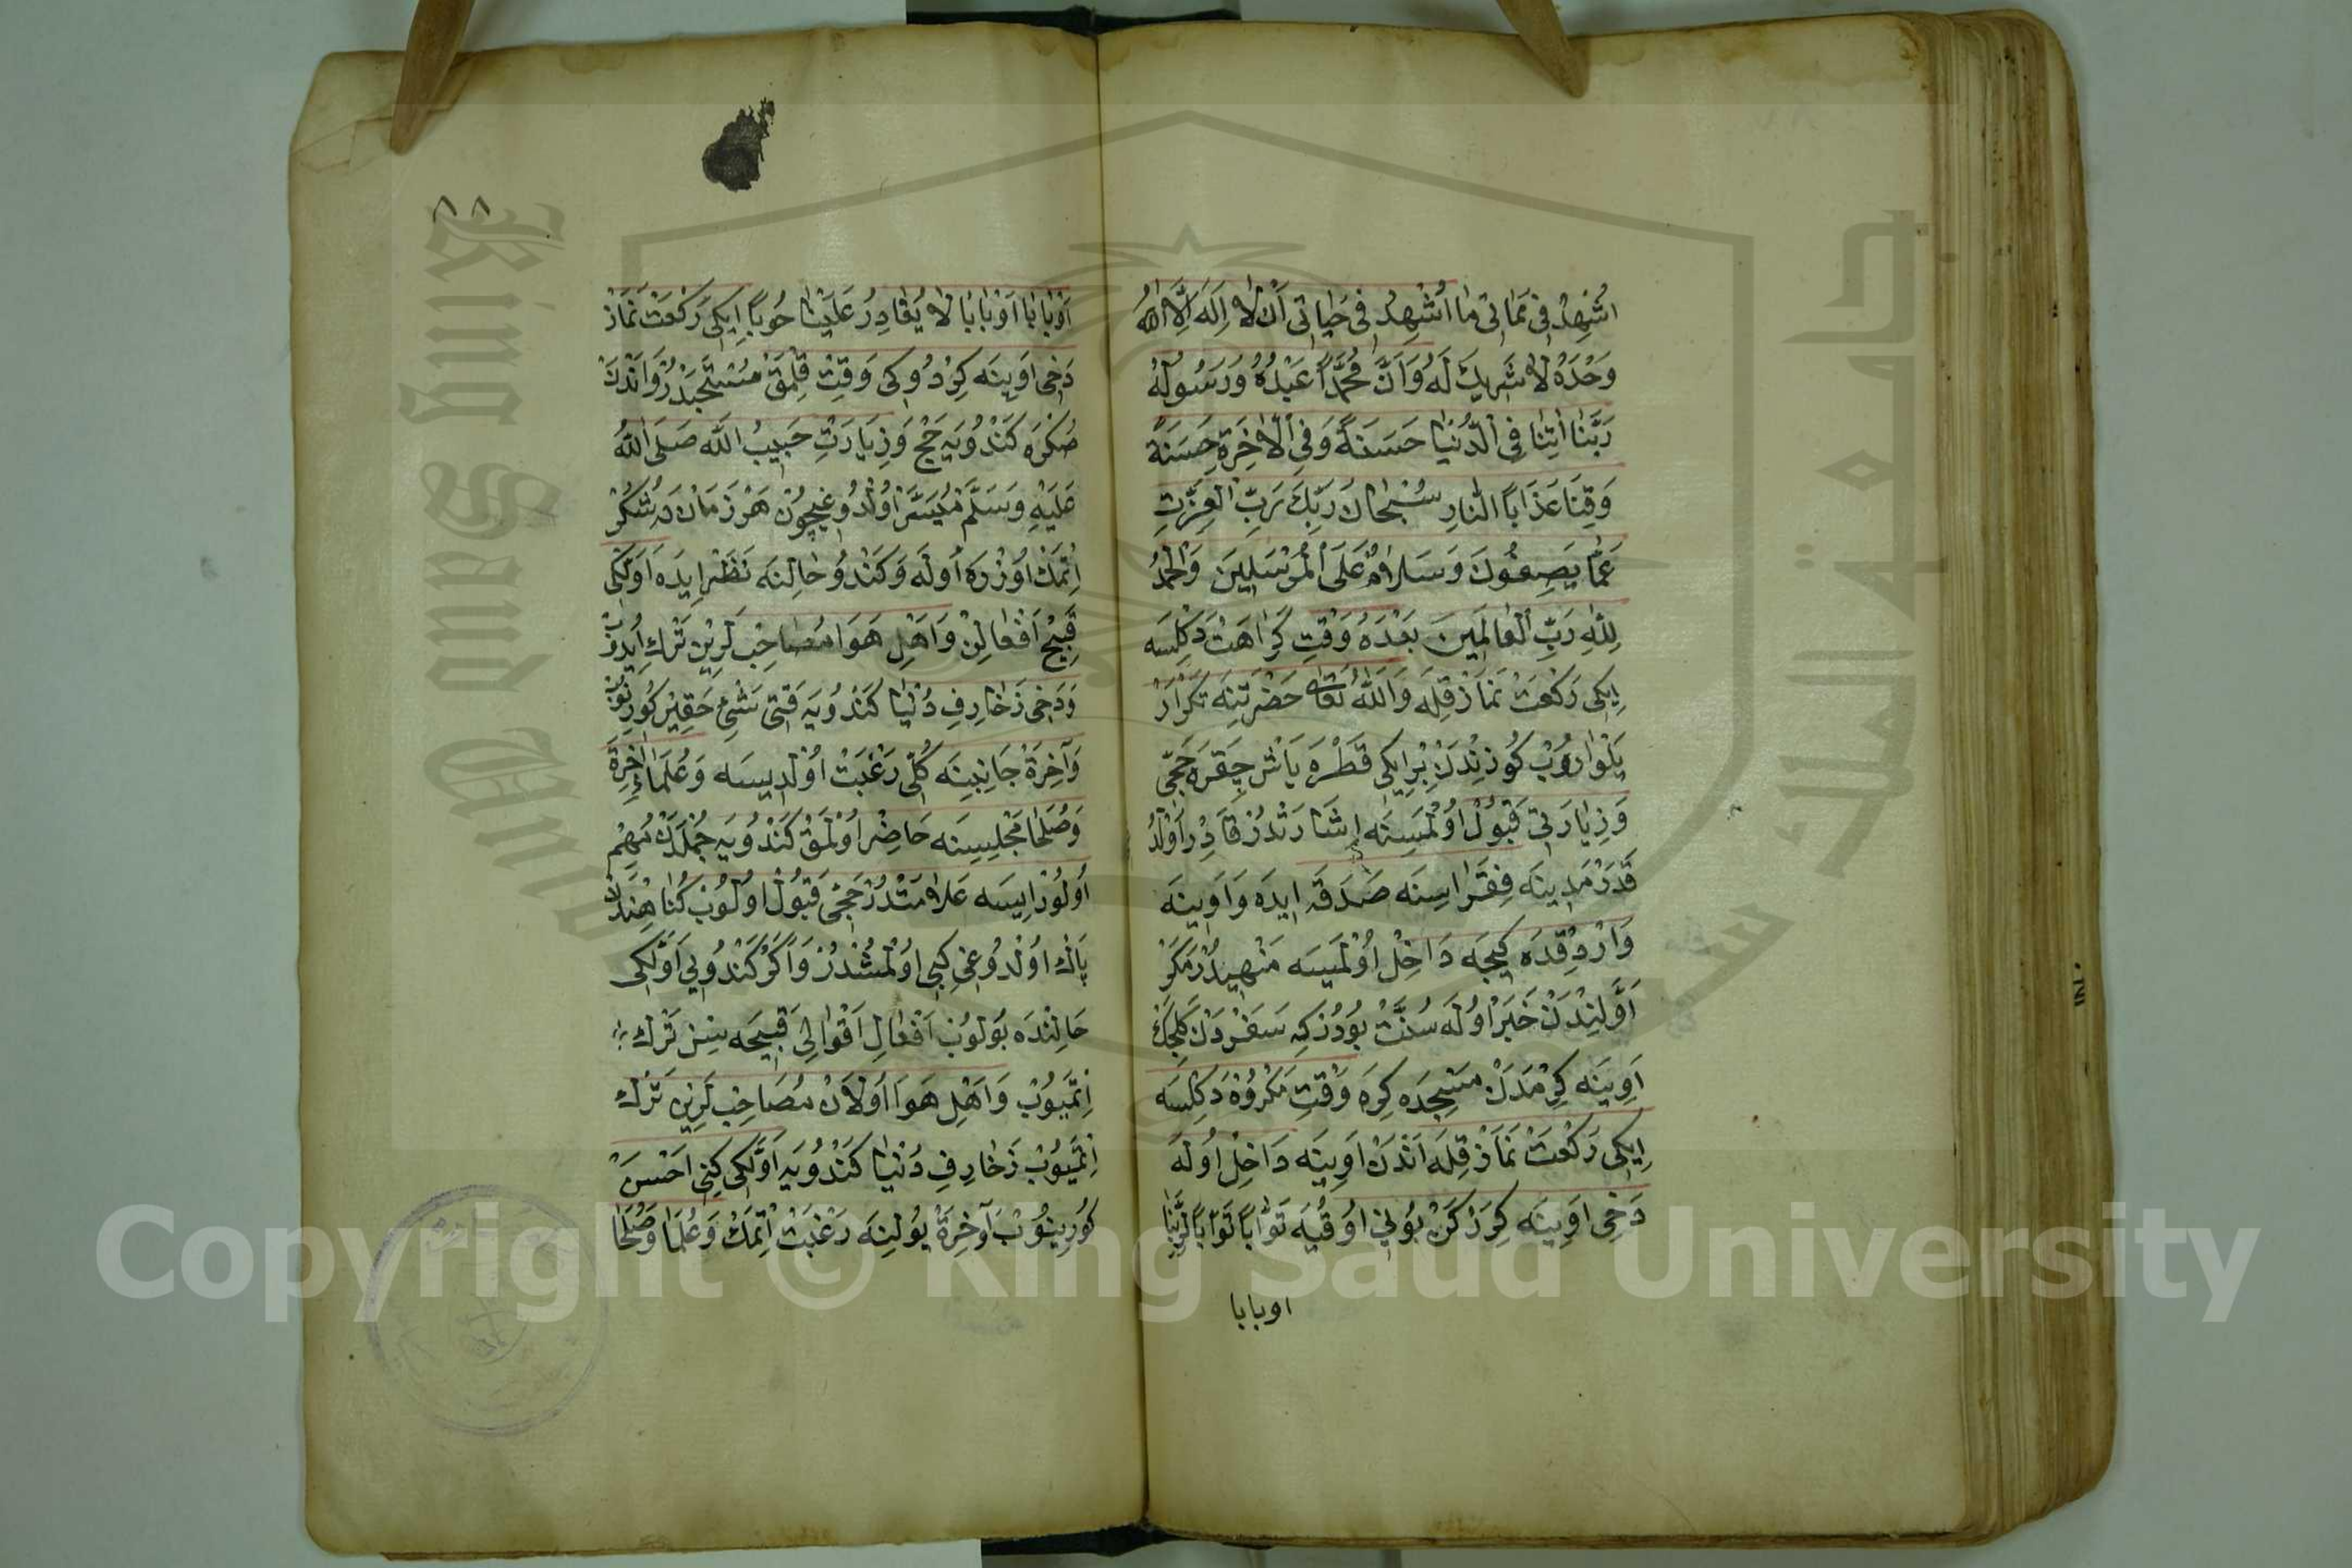 اُشْهِدُ فِي مَمَاتِي مَا اُشْهِدُ فِي حَيَاتِي اَنْ لَا اِلَهَ اِلَّا اللهُ
وَحْدَهُ لَا شَرِيكَ لَهُ وَاَنَّ مُحَمَّدًا عَبْدُهُ وَرَسُولُهُ
رَبَّنَا اٰتِنَا فِي الدُّنْيَا حَسَنَةً وَفِي الْاٰخِرَةِ حَسَنَةً
وَقِنَا عَذَابَ النَّارِ سُبْحَانَ رَبِّكَ رَبِّ الْعِزَّتِ
عَمَّا يَصِفُونَ وَسَلَامٌ عَلَى الْمُرْسَلِينَ وَالْحَمْدُ
لِلّٰهِ رَبِّ الْعَالَمِينَ بَعْدَهُ وَقْتِ كَرَاهَتْ دَكِلسَه
اِيكِى رَكْعَتْ نَمَازْ قِلَه وَاللهُ تَعَالٰى حَضْرَتِنَه تَكْرَارْ
يَلْوَارُوبْ كُوزِنْدَنْ بِرْ اِيكِى قَطْرَه يَاشْ چِقَرَه حَجِّى
وَزِيَارَتِى قَبُولْ اُولْمَسِنَه اِشَارَتْدُرْ قَادِرْ اُولْدُ
قَدَرْ مَدِينَه فُقَرَاسِنَه صَدَقَه اِيدَه وَاَوِينَه
وَارْدِقْدَه كِيجَه دَاخِلْ اُولْمَيَسَه مَنْهِيدُرْ مَكَرْ
اَوَّلِنْدَنْ خَبَرْ اُولَه سُنَّتْ بُودُرْ كِه سَفَرْدَنْ كَلِجَكْ
اَوِينَه كِرْمَدَنْ مَسْجِدَه كِرَه وَقْتِ مَكْرُوهْ دَكِلسَه
اِيكِى رَكْعَتْ نَمَازْ قِلَه اَنْدَنْ اَوِينَه دَاخِلْ اُولَه
دَخِى اَوِينَه كِرَرْكَنْ بُونِى اُوقُيَه تَوَّابًا تَوَّابًا لِرَبِّنَا
اوبابا
٨٨
اَوْبًابًا اَوْبًابًا لَا يُغَادِرُ عَلَيْنَا حُوبًا اِيكِى رَكْعَتْ نَمَازْ
دَخِى اَوِينَه كِرْدُوكِى وَقِتْ قِلْمَقْ مُسْتَحَبْدُرْ وَاَنْدَنْ
صُكْرَه كَنْدُويَه حَجْ وَزِيَارَتِ حَبِيبُ الله صَلَى اللهُ
عَلَيْهِ وَسَلَّمْ مُيَسَّرْ اُولْدُوغِيچُونْ هَرْ زَمَانْدَه شُكُرْ
اِتْمَكْ اُوزْرَه اُولَه وَكَنْدُو حَالِنَه نَظَرْ اِيدَه اَوَّلْكِى
قَبِيحْ اَفْعَالِنْ وَاَهْلِ هَوَا مُصَاحِبْلَرِيْن تَرْك اِيدُوبْ
وَدَخِى زَخَارِفِ دُنْيَا كَنْدُويَه قَتِى شَئْ حَقِيْر كُورِنُوبْ
وَآخِرَةْ جَانِبِنَه كُلِّى رَغْبَتْ اُولْدِيسَه وَعُلَمَاءِ اٰخِرَةْ
وَصُلَحَا مَجْلِسِنَه حَاضِرْ اُولْمَقْ كَنْدُويَه جُمْلَدَنْ مُهِمْ
اُولُورْ اِيسَه عَلَامَتْدُرْ حَجِّى قَبُولْ اُولُوبْ كُنَاهِنْدَنْ
پَاكْ اُولْدُوغِى كِبِى اُولْمُشْدُرْ وَاكَرْ كَنْدُويِى اَوَّلْكِى
حَالِنْدَه بُولُوبْ اَفْعَالِ اَقْوَالِ قَبِيحَه سِنِنْ تَرْك
اِتْمَيُوبْ وَاَهْلِ هَوَا اُولَانْ مُصَاحِبْلَرِيْن تَرْك
اِتْمَيُوبْ زَخَارِفِ دُنْيَا كَنْدُويَه اَوَّلْكِى كِبِى اَحْسَنْ
كُورِينُوبْ آخِرَةْ يُولِنَه رَغْبَتْ اِتْمَكْ وَعُلَمَا وَصُلَحَا
جامعة الملك سعود
King Saud University
Copyright © King Saud University